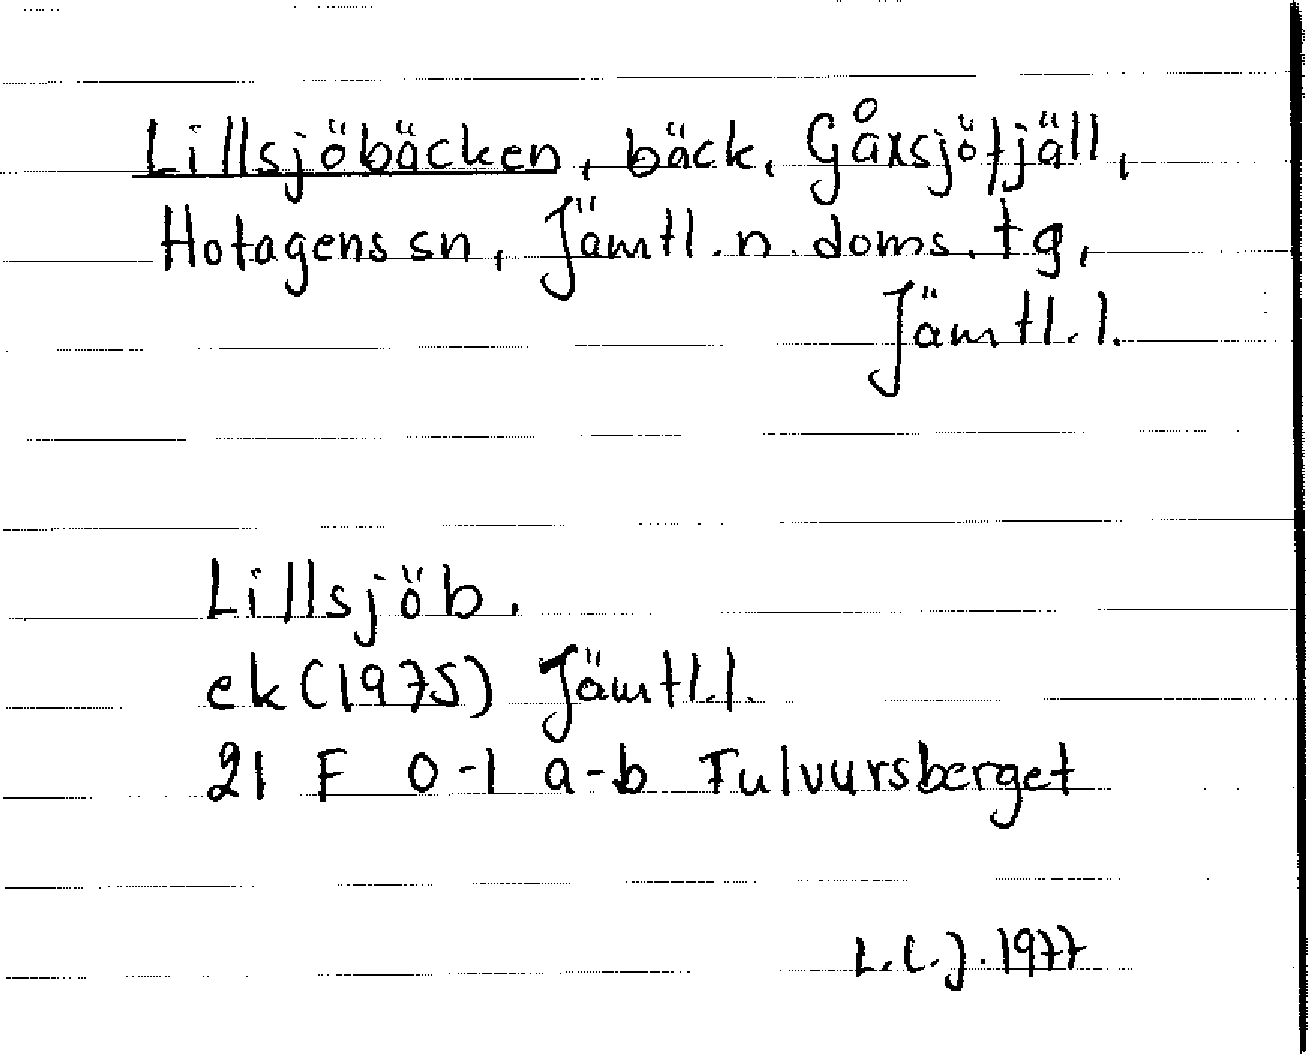 Lillsjöbäcken, bäck, Gåxsjöfjäll,
Hotagens sn, Jämtl. n. doms. tg,
Jämtl. l.
Lillsjöb.
ek (1975) Jämtl. l.
21 F 0-1 a-b Tulvursberget
L.L.J. 1977